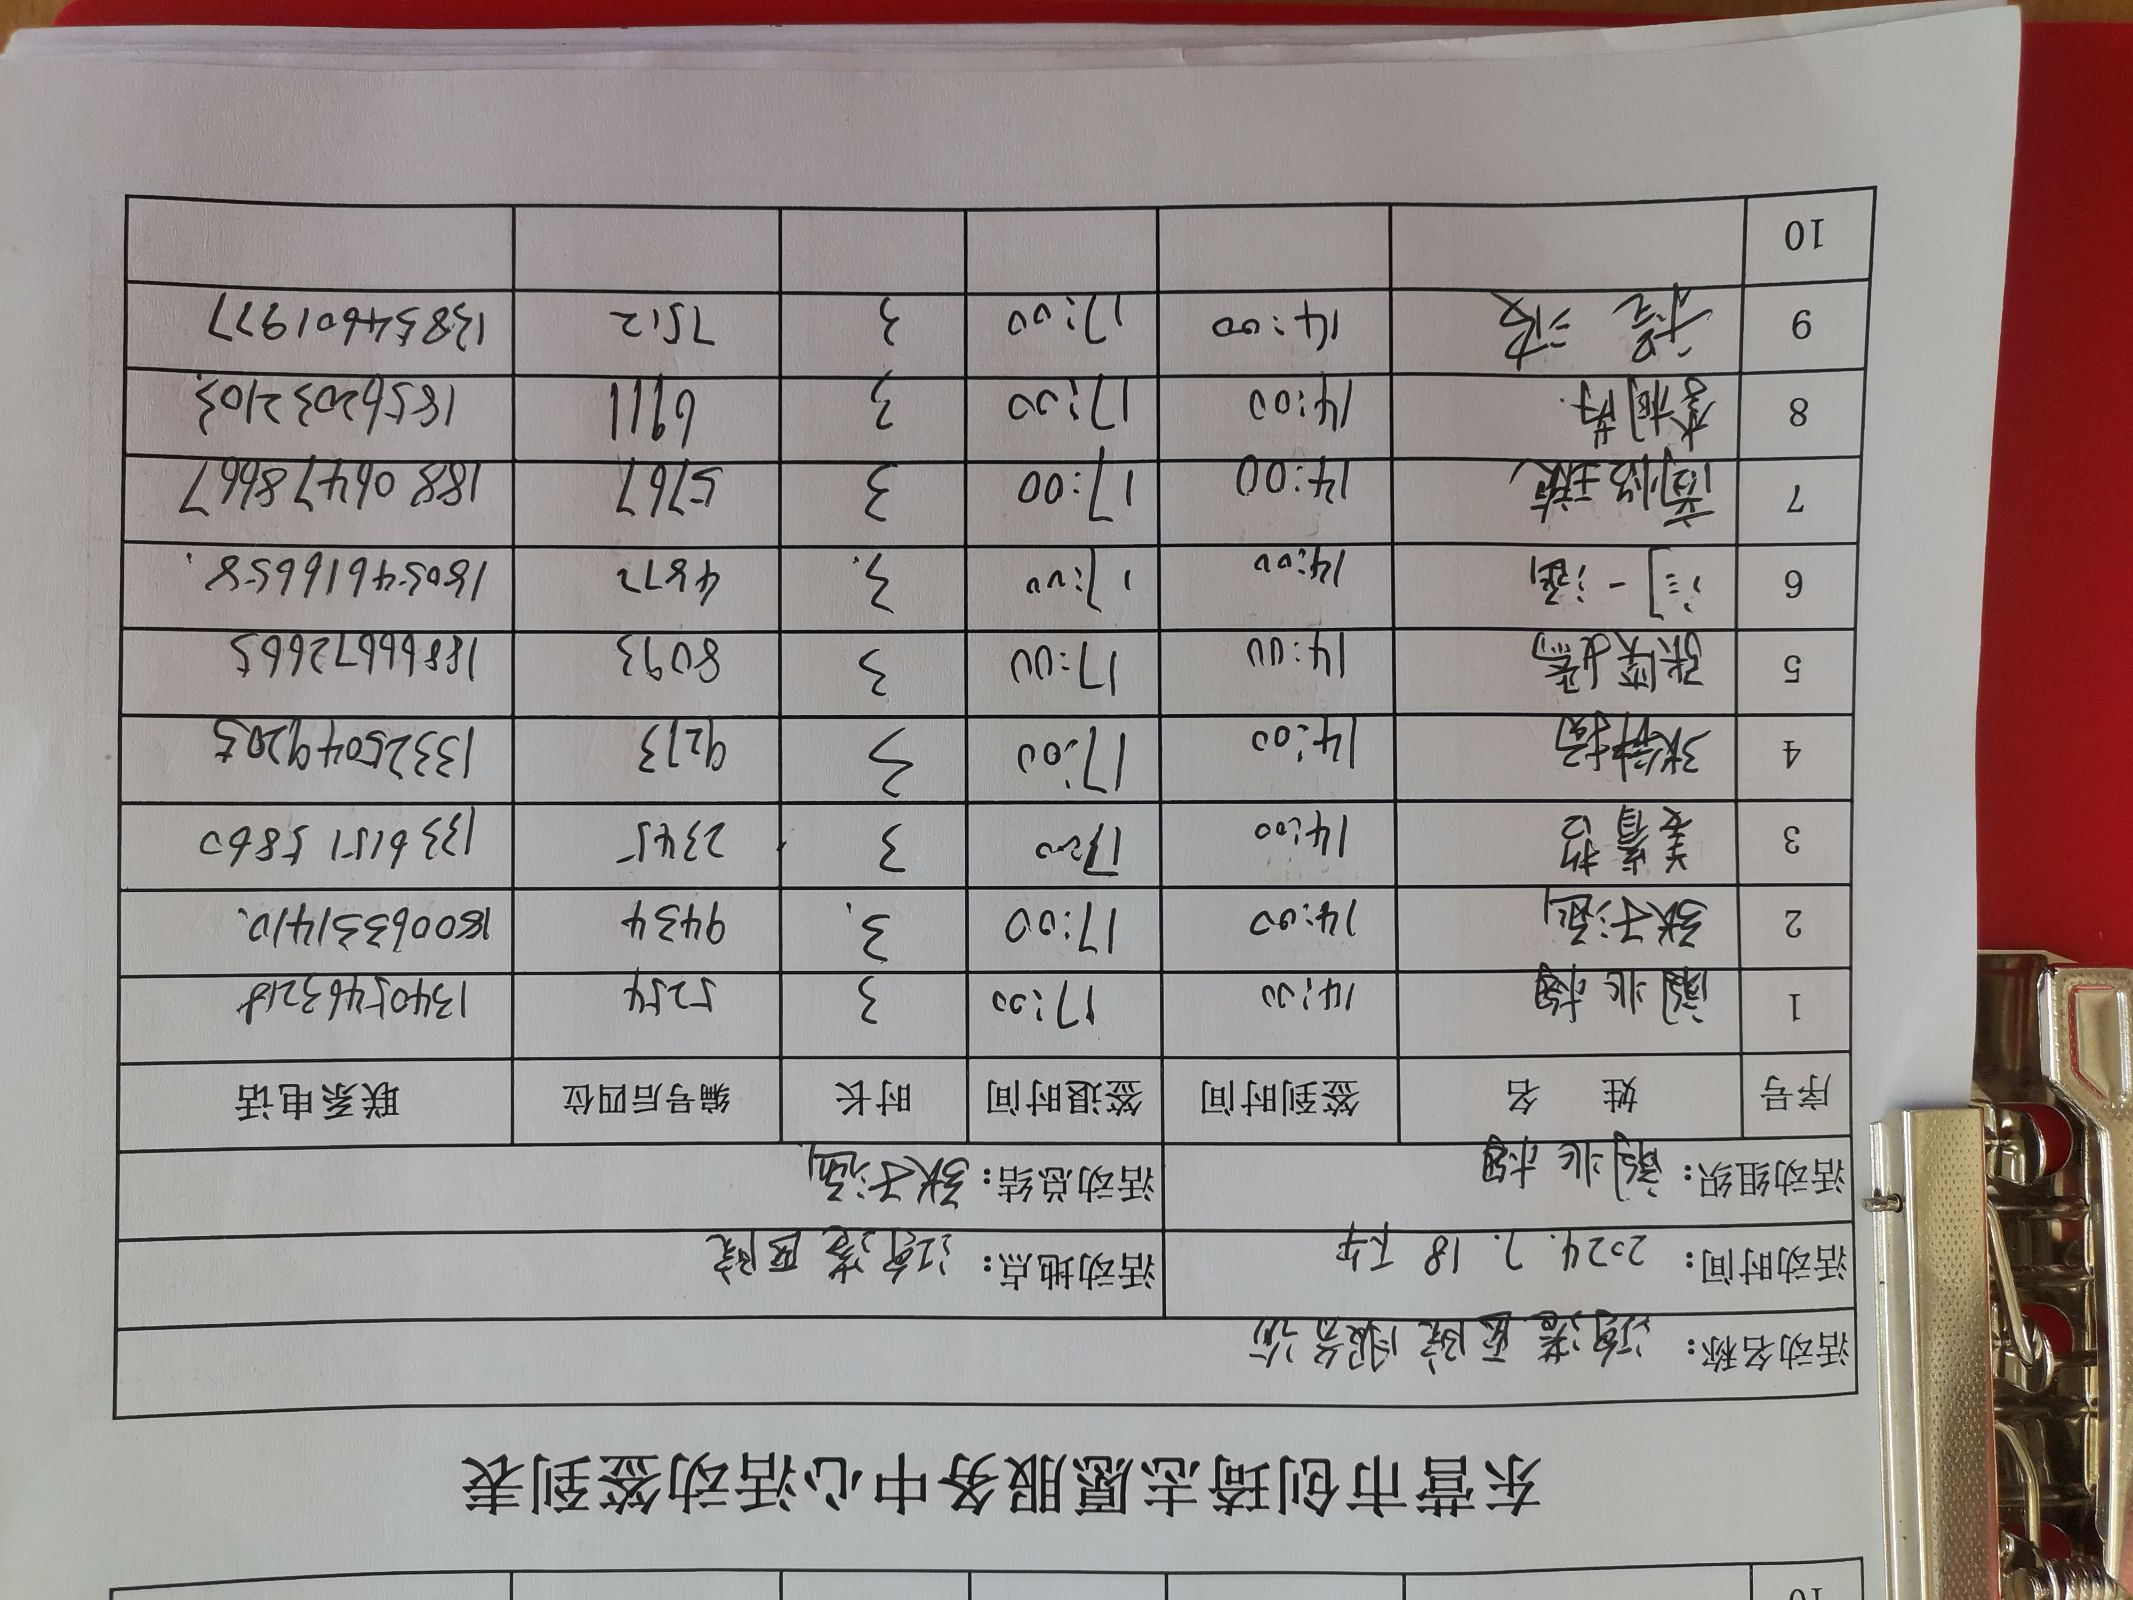 东营市创琦志愿服务中心活动签到表
活动名称： 河滨医院服务岗
活动时间： 2024.7.18 下午 活动地点： 河滨医院
活动组织： 活动总结： 张子涵
序号 姓 名 签到时间 签退时间 时长 编号后四位 联系电话
1 14:00 17:00 3 5254
2 张子涵 14:00 17:00 3. 9434 18006331410.
3 姜睿哲 14:00 17:00 3 2345 13361515860
4 14:00 17:00 3 9273 13325049205
5 14:00 17:00 3 8093 18866672665
6 闫一涵 14:00 17:00 3. 4872 18054616658.
7 14:00 17:00 3 5767 18806478667
8 14:00 17:00 3 6911 18562032103.
9 程一波 14:00 17:00 3 7512 13854601977
10
10